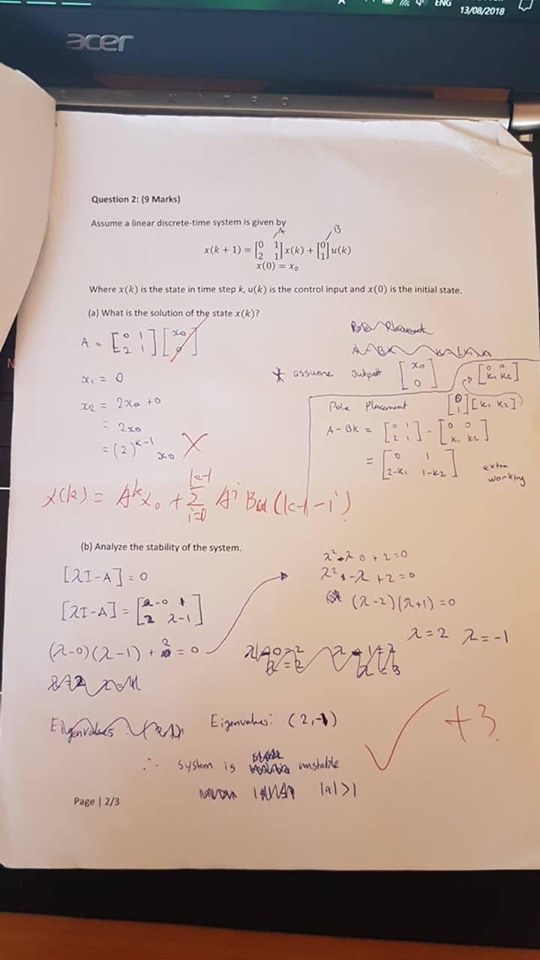 ENG
13/08/2018
acer
Question 2: (9 Marks)
Assume a linear discrete-time system is given by
A B
x(k + 1) = [0 1; 2 1] x(k) + [0; 1] u(k)
x(0) = x₀
Where x(k) is the state in time step k, u(k) is the control input and x(0) is the initial state.
(a) What is the solution of the state x(k)?
A = [0 1; 2 1] [x₀; 0]
x₁ = 0
x₂ = 2x₀ + 0
= 2x₀
= (2)^(k-1) x₀
* assume output [x₀; 0]
→ [0 0; k₁ k₂]
Pole Placement [0; 1] [k₁ k₂]
A - Bk = [0 1; 2 1] - [0 0; k₁ k₂]
= [0 1; 2-k₁ 1-k₂]
extra
working
x(k) = A^k x₀ + Σ_{i=0}^{k-1} A^i B u(k-1-i)
(b) Analyze the stability of the system.
[λI-A] = 0
[λI-A] = [λ-0 1; 2 λ-1]
(λ-0)(λ-1) + 2 = 0
λ² - λ 0 + 2 = 0
λ² - λ + 2 = 0
(λ-2)(λ+1) = 0
λ = 2 λ = -1
Eigenvalues: (2,-1)
∴ System is unstable
|a| > 1
+3
Page | 2/3